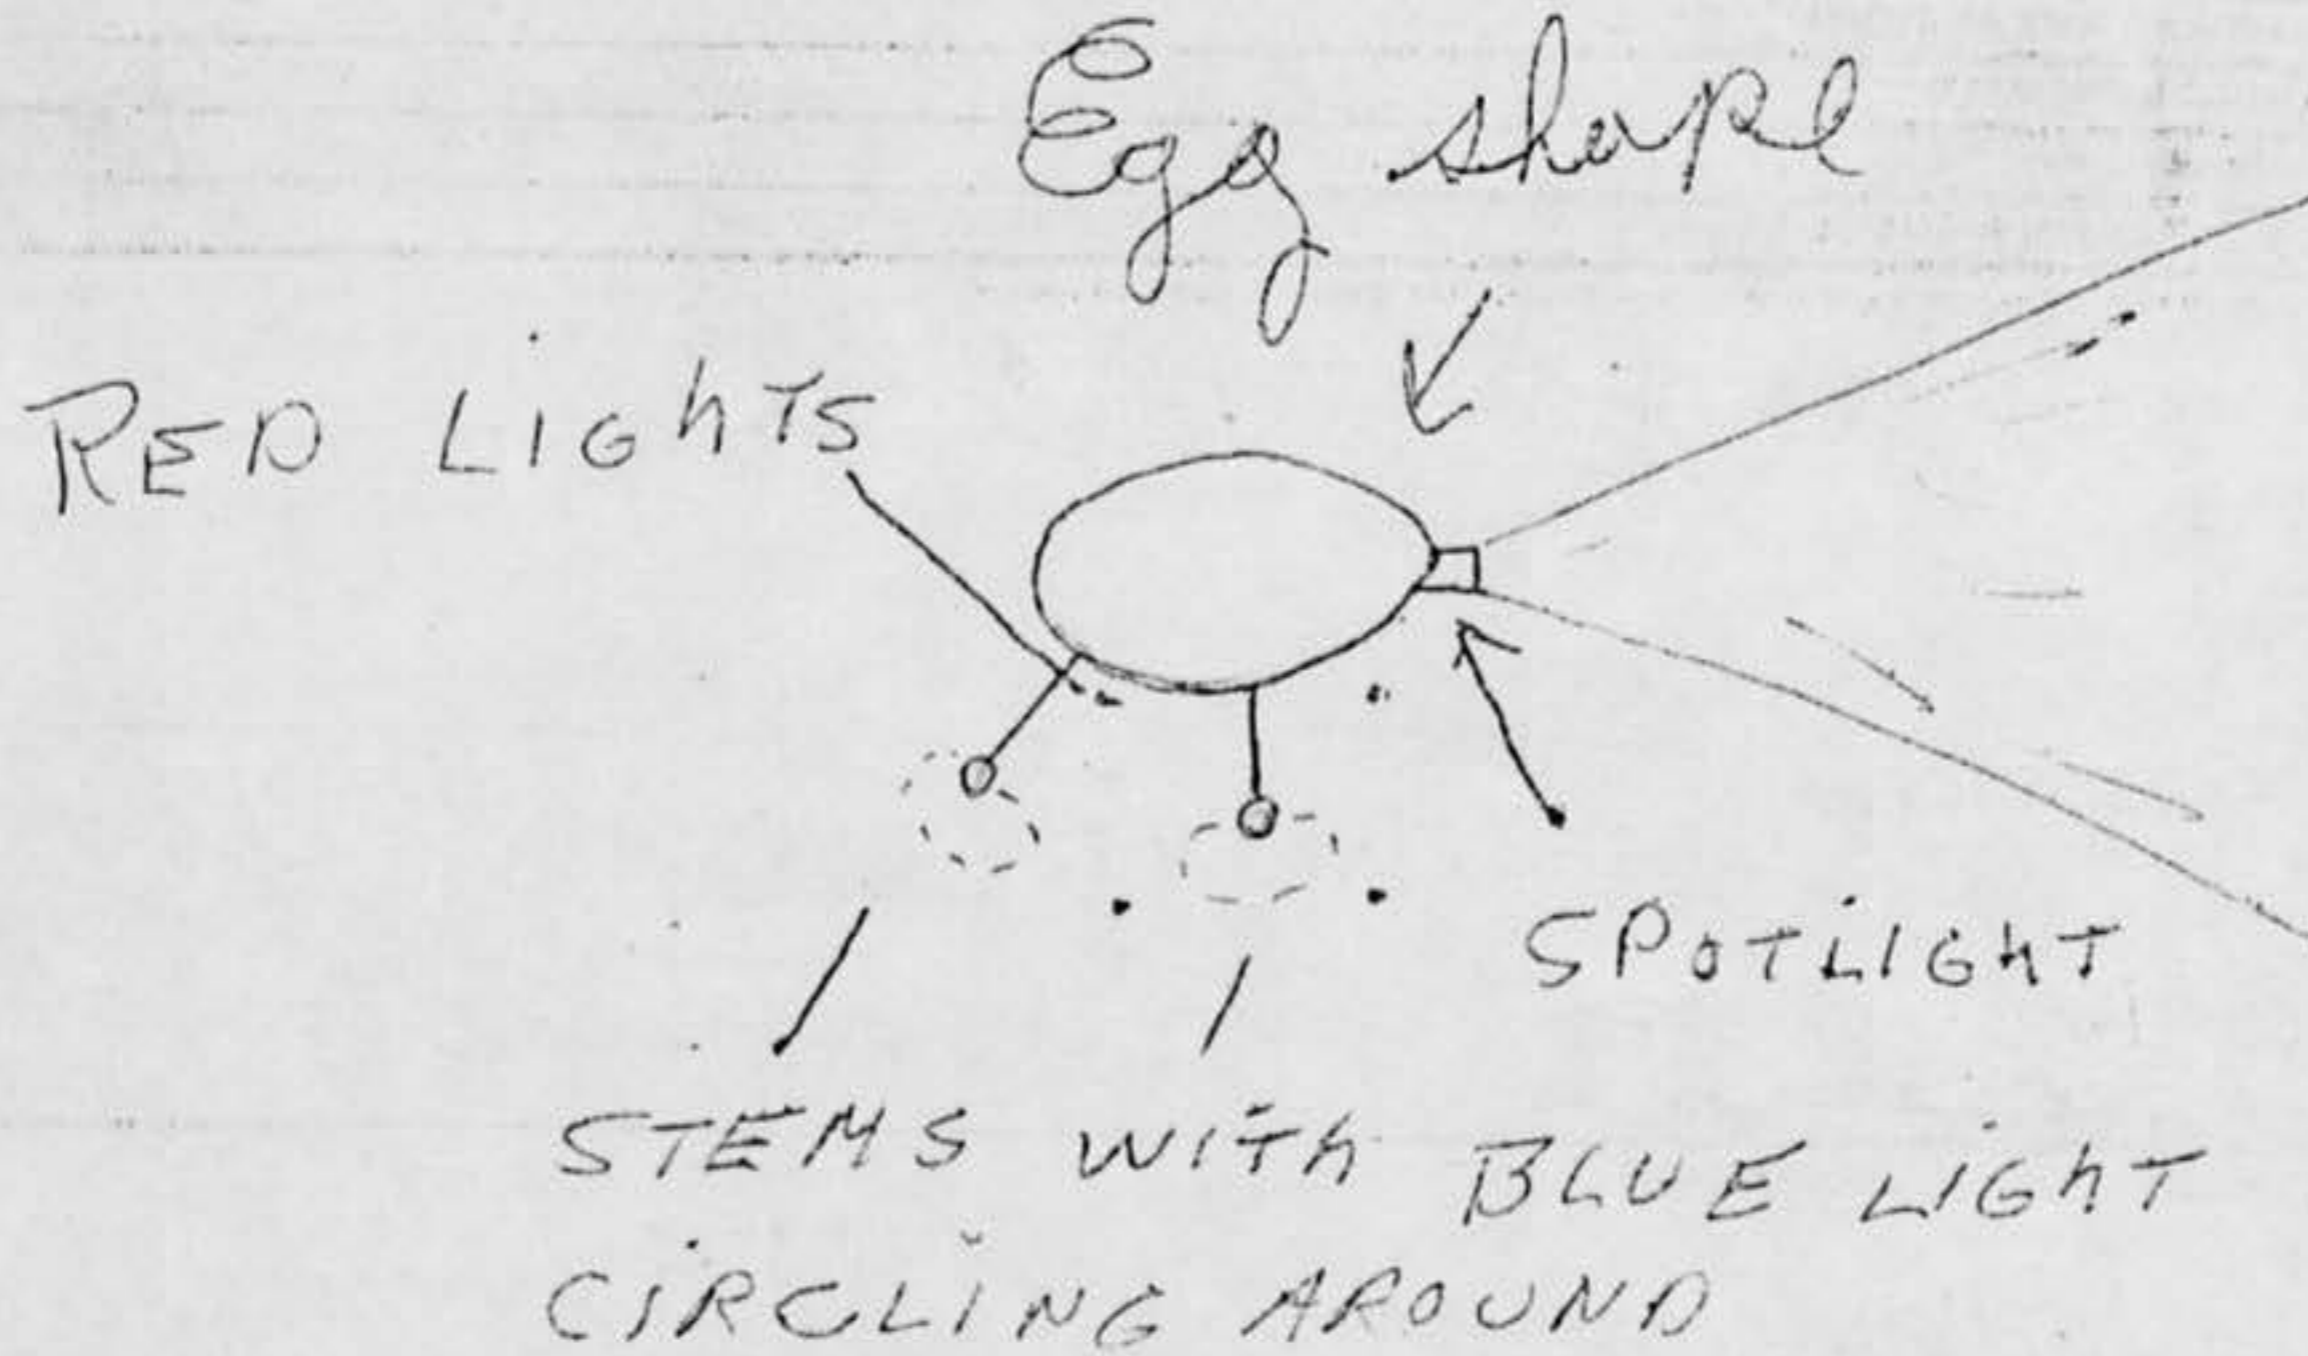 Egg shape
RED LIGHTS
SPOTLIGHT
STEMS WITH BLUE LIGHT
CIRCLING AROUND